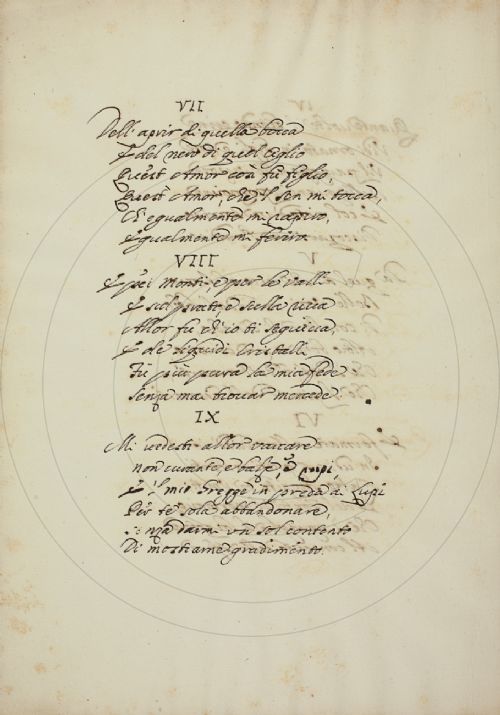 VII
Dell' aprir di quella bocca
E del nero di quel Ciglio
Quest' Amor così fù figlio,
Quest' Amor, che 'l sen mi tocca,
Ch' egualmente mi rapiro,
Egualmente mi feriro.
VIII
E pei Monti e per le valli
E sul prato, e sulla riva
Allor fu ch' io ti seguiva,
E de liquidi Cristalli
Fu più pura la mia fede
Senza mai trovar mercede
IX
Mi vedesti allor varcare
non curante, e balze, e rupi,
E 'l mio Gregge in preda a' Lupi
Per te sola abbandonare,
darmi un sol contento
Di mostrarne gradimento.